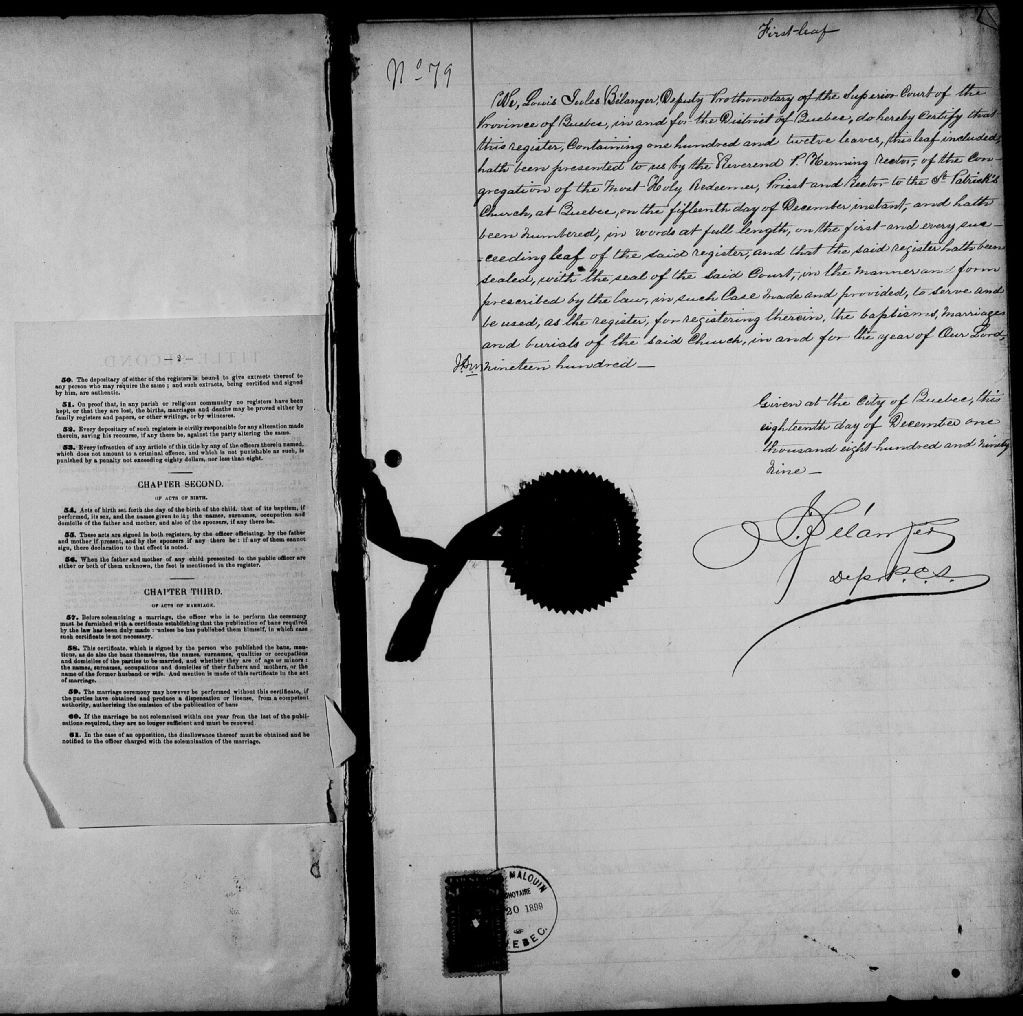 — 2 —
50. The depositary of either of the registers is bound to give extracts thereof to
any person who may require the same; and such extracts, being certified and signed
by him, are authentic.
51. On proof that, in any parish or religious community no registers have been
kept, or that they are lost, the births, marriages and deaths may be proved either by
family registers and papers, or other writings, or by witnesses.
52. Every depositary of such registers is civilly responsible for any alteration made
therein, saving his recourse, if any there be, against the party altering the same.
53. Every infraction of any article of this title by any of the officers therein named,
which does not amount to a criminal offence, and which is not punishable as such, is
punished by a penalty not exceeding eighty dollars, nor less than eight.
CHAPTER SECOND.
OF ACTS OF BIRTH.
54. Acts of birth set forth the day of the birth of the child, that of its baptism, if
performed, its sex, and the names given to it; the names, surnames, occupation and
domicile of the father and mother, and also of the sponsors, if any there be.
55. These acts are signed in both registers, by the officer officiating, by the father
and mother if present, and by the sponsors if any there be: if any of them cannot
sign, there declaration to that effect is noted.
56. When the father and mother of any child presented to the public officer are
either or both of them unknown, the fact is mentioned in the register.
CHAPTER THIRD.
OF ACTS OF MARRIAGE.
57. Before solemnizing a marriage, the officer who is to perform the ceremony
must be furnished with a certificate establishing that the publication of bans required
by the law has been duly made: unless he has published them himself, in which case
such certificate is not necessary.
58. This certificate, which is signed by the person who published the bans, men-
tions, as do also the bans themselves, the names, surnames, qualities or occupations
and domiciles of the parties to be married, and whether they are of age or minors:
the names, surnames, occupations and domiciles of their fathers and mothers, or the
name of the former husband or wife. And mention is made of this certificate in the act
of marriage.
59. The marriage ceremony may however be performed without this certificate, if
the parties have obtained and produce a dispensation or license, from a competent
authority, authorizing the omission of the publication of bans
60. If the marriage be not solemnized within one year from the last of the publi-
cations required, they are no longer sufficient and must be renewed
61. In the case of an opposition, the disallowance thereof must be obtained and be
notified to the officer charged with the solemnization of the marriage.
First leaf
No 79
We, Louis Jules Bélanger, Deputy Prothonotary of the Superior Court of the
Province of Quebec, in and for the District of Quebec, do hereby certify that
this register, Containing one hundred and twelve leaves, this leaf included,
hath been presented to us by the Reverend P. Henning rector, of the Con-
gregation of the Most Holy Redeemer, Priest and Rector to the St. Patrick's
Church, at Quebec, on the fifteenth day of December instant, and hath
been numbered, in words at full length, on the first and every suc-
ceeding leaf of the said register, and that the said register hath been
sealed, with the seal of the said Court, in the manner and form
prescribed by the law, in such Case made and provided, to serve and
be used, as the register, for registering therein, the baptisms, marriages
and burials of the said Church, in and for the year of Our Lord,
nineteen hundred —
Given at the City of Quebec, this
eighteenth day of December one
thousand eight hundred and ninety
nine —
Bélanger
Dep. P.C.S.
MALOUIN
20 1899